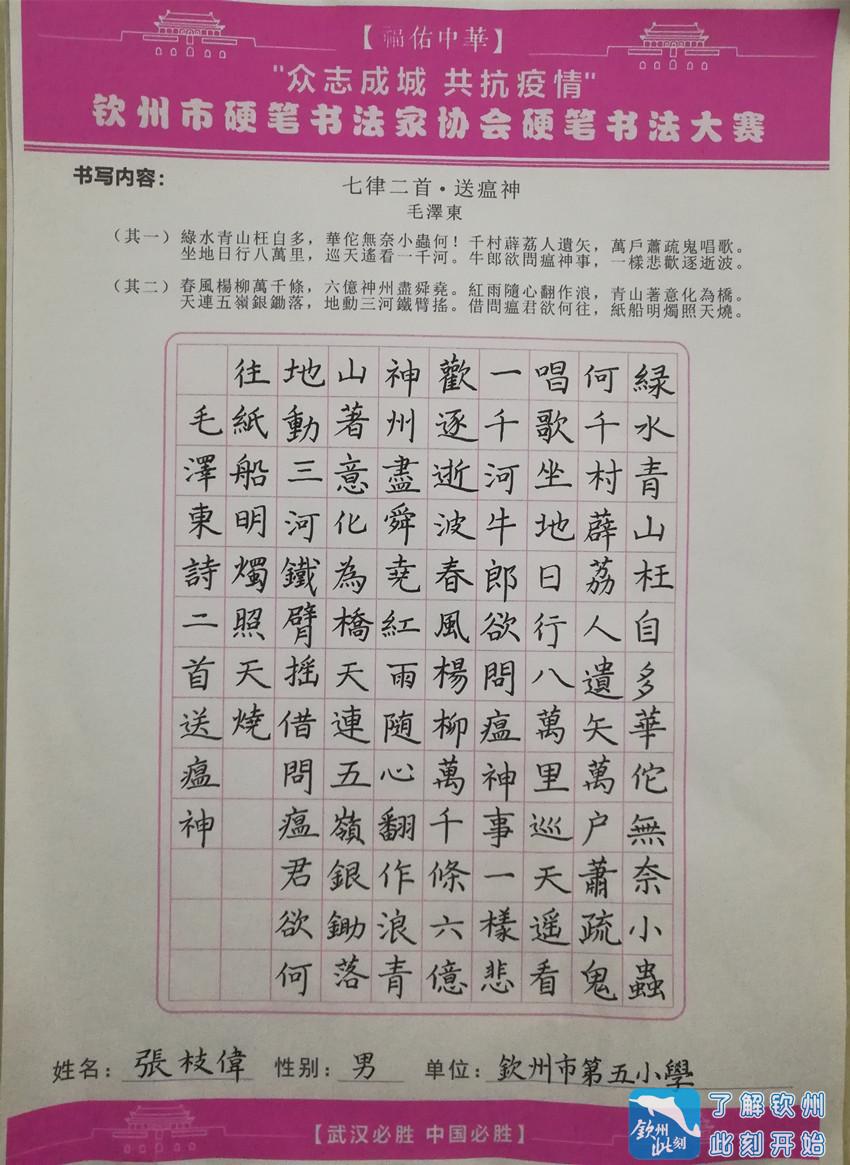 【福佑中華】
"众志成城 共抗疫情"
钦州市硬笔书法家协会硬笔书法大赛
书写内容：
七律二首·送瘟神
毛澤東
（其一）綠水青山枉自多，華佗無奈小蟲何！千村薜荔人遺矢，萬戶蕭疏鬼唱歌。
坐地日行八萬里，巡天遙看一千河。牛郎欲問瘟神事，一樣悲歡逐逝波。
（其二）春風楊柳萬千條，六億神州盡舜堯。紅雨隨心翻作浪，青山著意化為橋。
天連五嶺銀鋤落，地動三河鐵臂搖。借問瘟君欲何往，紙船明燭照天燒。
緑水青山枉自多華佗無奈小蟲
何千村薜荔人遺矢萬户蕭疏鬼
唱歌坐地日行八萬里巡天遥看
一千河牛郎欲問瘟神事一樣悲
歡逐逝波春風楊柳萬千條六億
神州盡舜堯紅雨随心翻作浪青
山著意化為橋天連五嶺銀鋤落
地動三河鐵臂摇借問瘟君欲何
往紙船明燭照天燒
毛澤東詩二首送瘟神
姓名：張枝偉 性别：男 单位：欽州市第五小學
【武汉必胜 中国必胜】
钦州此刻
了解钦州
此刻开始